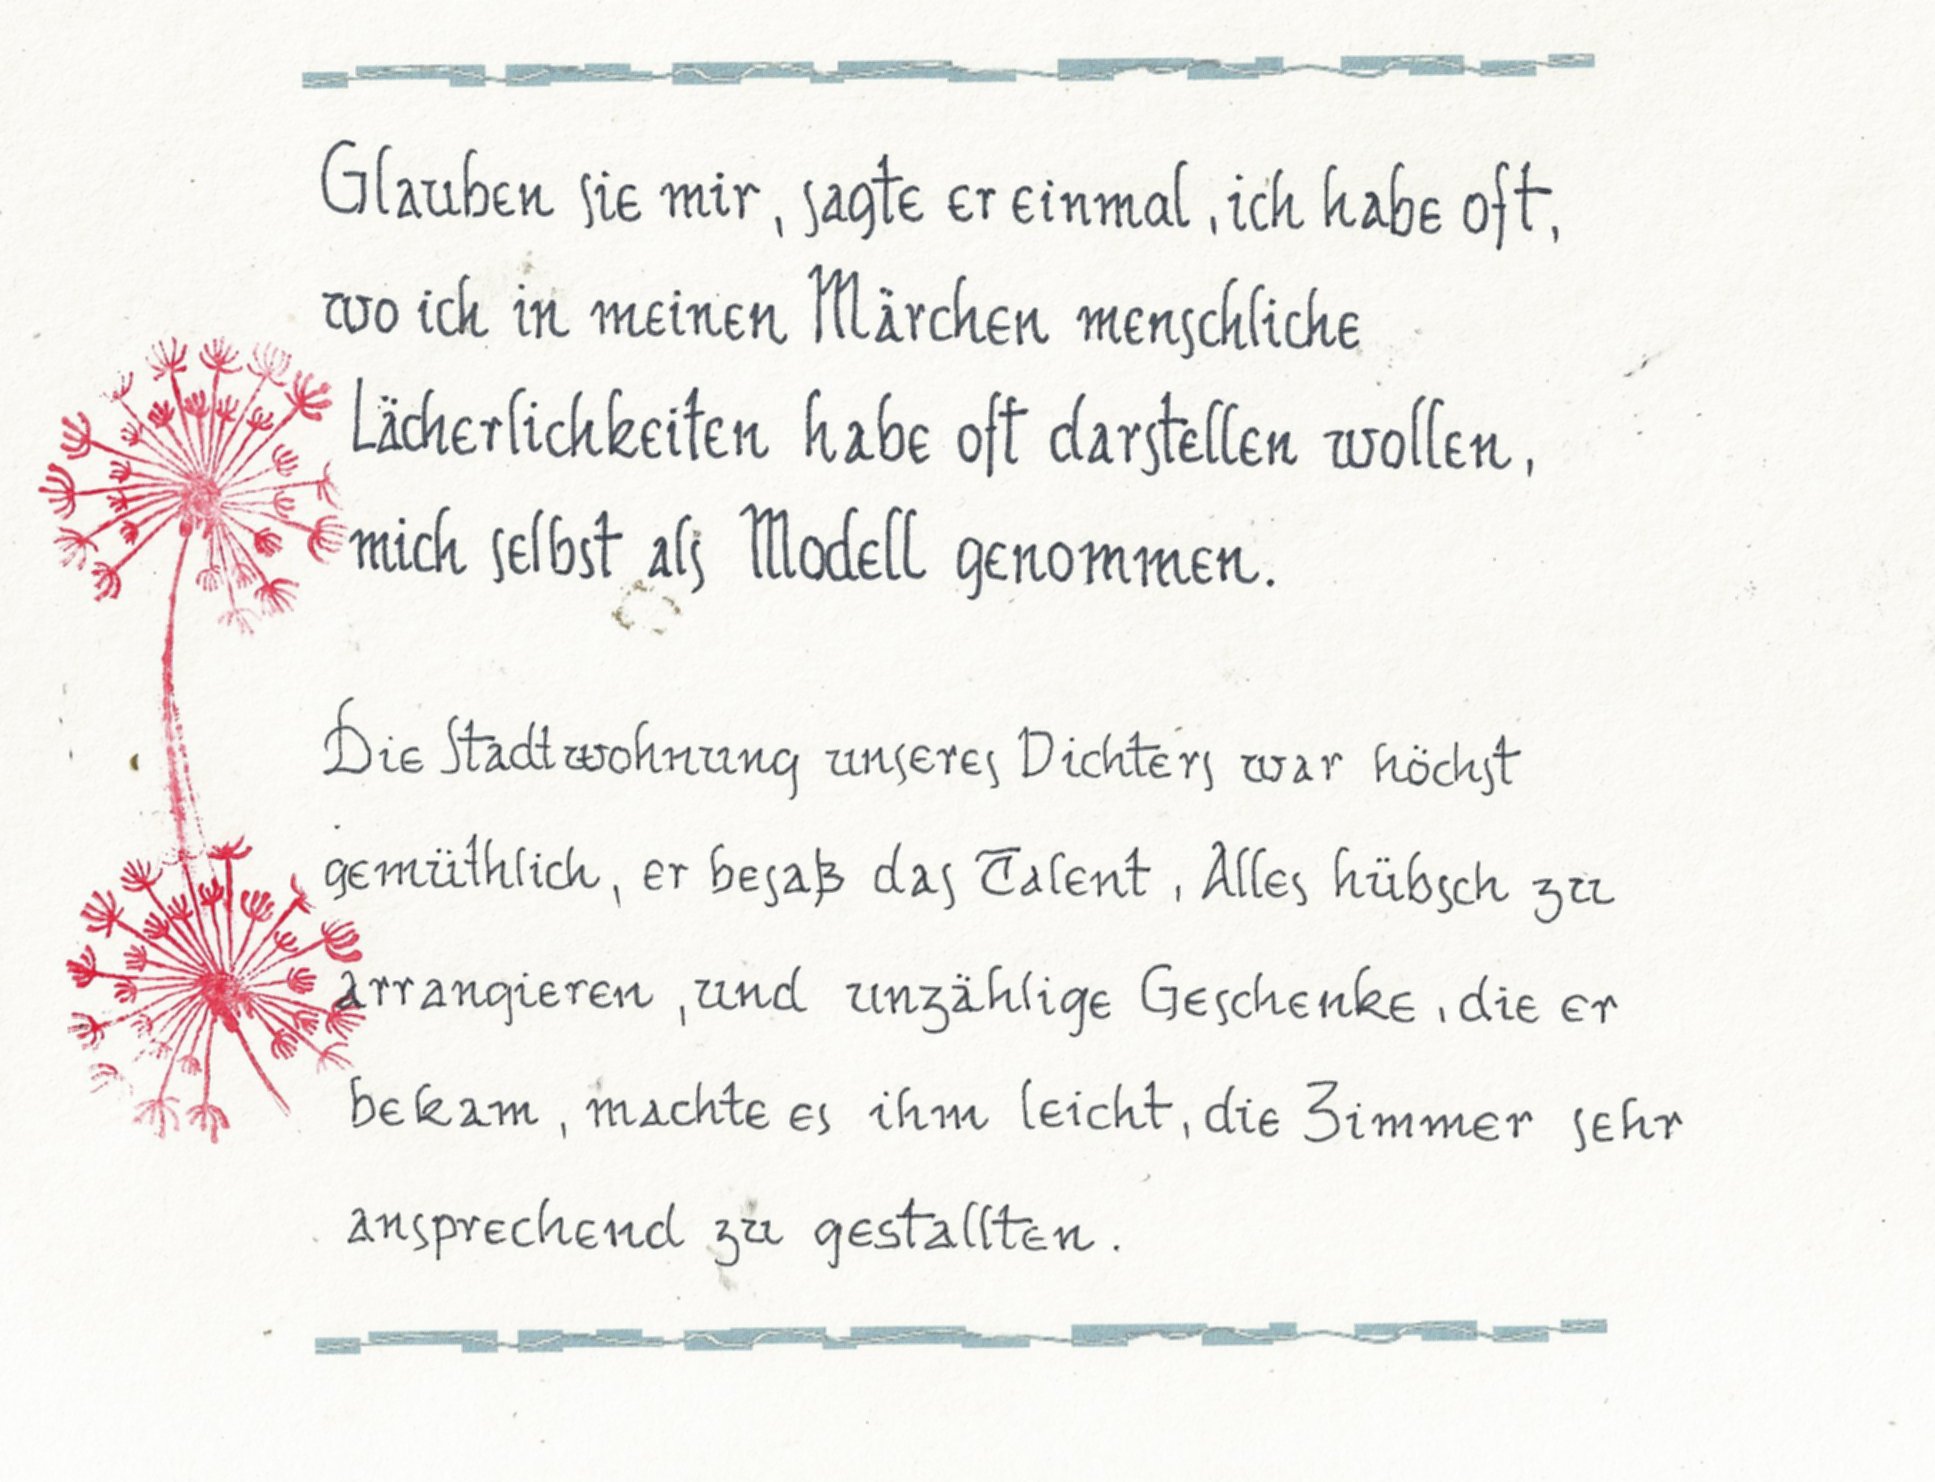 Glauben sie mir, sagte er einmal, ich habe oft,
wo ich in meinen Märchen menschliche
Lächerlichkeiten habe oft darstellen wollen,
mich selbst als Modell genommen.
Die Stadtwohnung unseres Dichters war höchst
gemüthlich, er besaß das Talent, Alles hübsch zu
arrangieren, und unzählige Geschenke, die er
bekam, machte es ihm leicht, die Zimmer sehr
ansprechend zu gestallten.